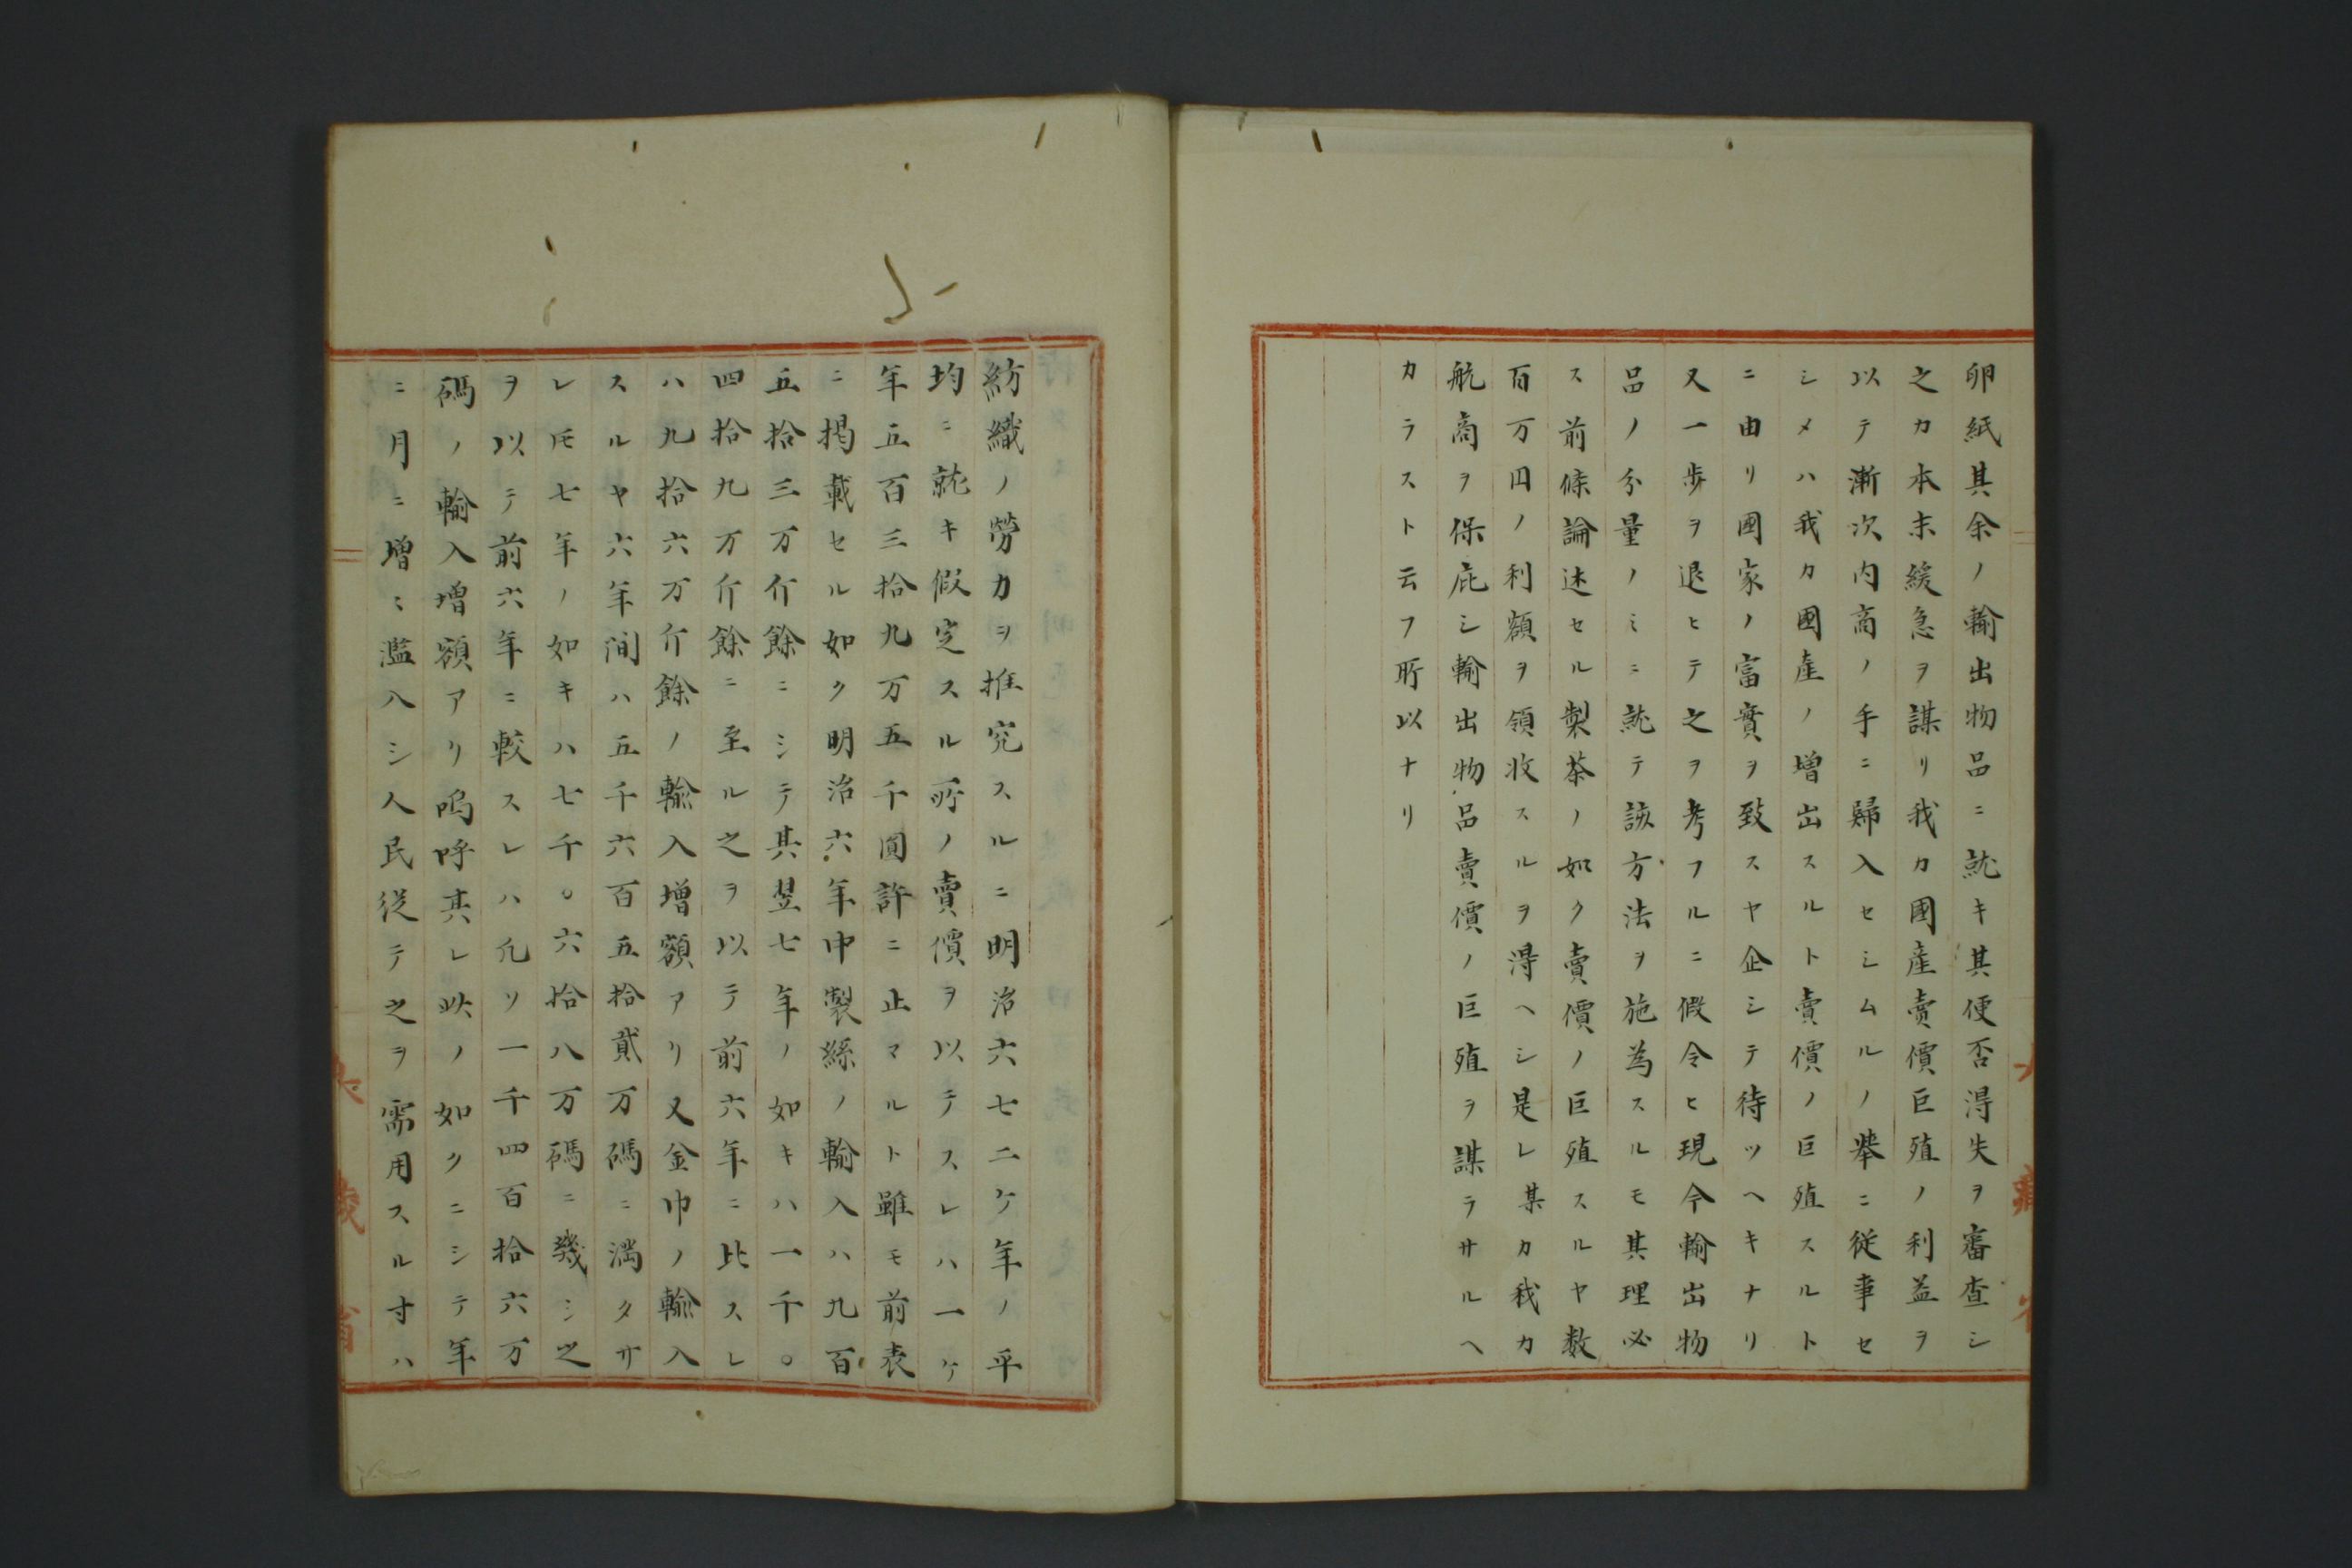 卵紙其余ノ輸出物品ニ就キ其便否得失ヲ審査シ
之カ本末緩急ヲ謀リ我カ國産賣價巨殖ノ利益ヲ
以テ漸次内商ノ手ニ歸入セシムルノ挙ニ従事セ
シメハ我カ國産ノ増出スルト賣價ノ巨殖スルト
ニ由リ國家ノ富實ヲ致スヤ企シテ待ツヘキナリ
又一歩ヲ退ヒテ之ヲ考フルニ假令ヒ現今輸出物
品ノ分量ノミニ就テ該方法ヲ施為スルモ其理必
ス前條論述セル製茶ノ如ク賣價ノ巨殖スルヤ数
百万円ノ利額ヲ領收スルヲ得ヘシ是レ某カ我カ
航商ヲ保庇シ輸出物品賣價ノ巨殖ヲ謀ラサルヘ
カラスト云フ所以ナリ
紡織ノ勞力ヲ推究スルニ明治六七二ケ年ノ平
均ニ就キ假定スル所ノ賣價ヲ以テスレハ一ケ
年五百三拾九万五千圓許ニ止マルト雖モ前表
ニ掲載セル如ク明治六年中製絲ノ輸入ハ九百
五拾三万斤餘ニシテ其翌七年ノ如キハ一千○
四拾九万斤餘ニ至ル之ヲ以テ前六年ニ比スレ
ハ九拾六万斤餘ノ輸入増額アリ又金巾ノ輸入
スルヤ六年間ハ五千六百五拾貳万碼ニ満タサ
レ𪜈七年ノ如キハ七千○六拾八万碼ニ幾シ之
ヲ以テ前六年ニ較スレハ凡ソ一千四百拾六万
碼ノ輸入増額アリ嗚呼其レ此ノ如クニシテ年
ニ月ニ増〻濫入シ人民従テ之ヲ需用スル寸ハ